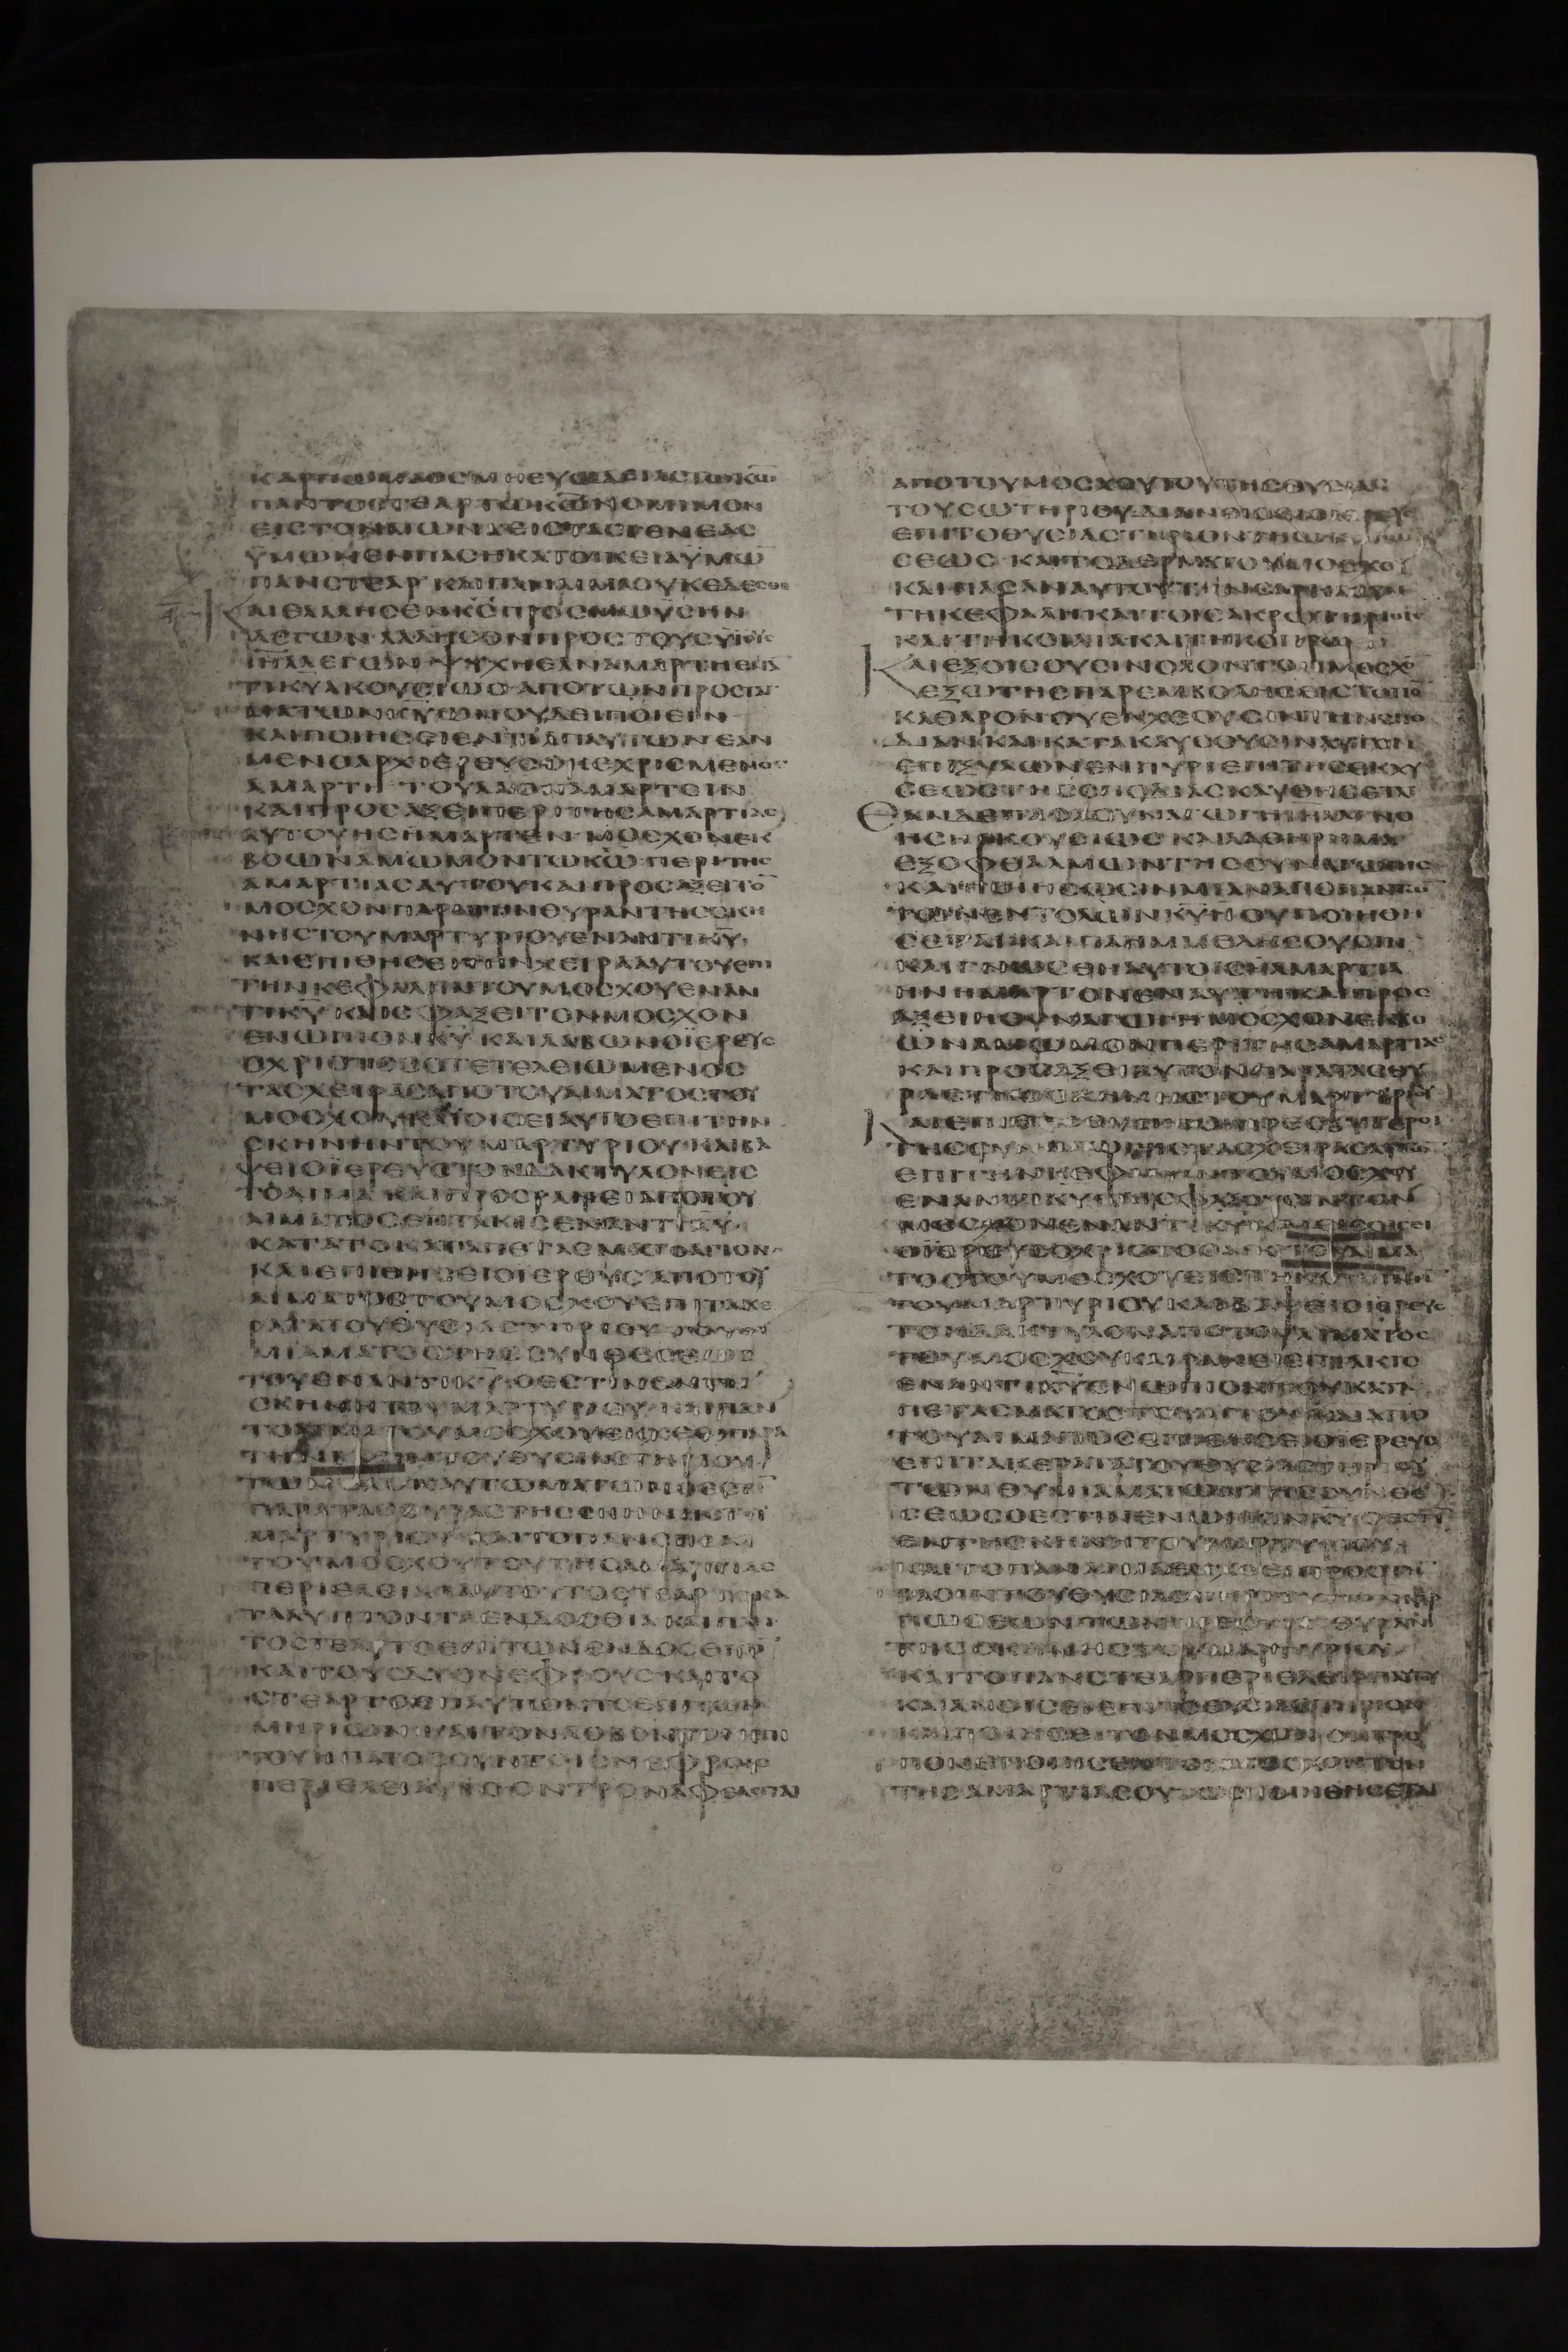 ΠΑΝ ΤΟ CΤΕΑΡ ΤΩ ΚΩ ΝΟΜΙΜΟΝ
ΕΙC ΤΟΝ ΑΙΩΝΑ ΕΙC ΤΑC ΓΕΝΕΑC
ΫΜΩΝ ΕΝ ΠΑCΗ ΚΑΤΟΙΚΕΙΑ ΥΜΩ̅
ΠΑΝ CΤΕΑΡ ΚΑΙ ΠΑΝ ΑΙΜΑ ΟΥΚ ΕΔΕCΘΕ
ΚΑΙ ΕΛΑΛΗCΕΝ ΚC ΠΡΟC ΜΩΥCΗΝ
ΛΕΓΩΝ ΛΑΛΗCΟΝ ΠΡΟC ΤΟΥC ΥΙΟΥC
ΙΗΛ ΛΕΓΩΝ ΨΥΧΗ ΕΑΝ ΑΜΑΡΤΗ ΕΝΑ̅
ΤΙ ΚΥ ΑΚΟΥCΙΩC ΑΠΟ ΤΩΝ ΠΡΟCΤΑΓ
ΜΑΤΩΝ ΚΥ ΩΝ ΟΥ ΔΕΙ ΠΟΙΕΙΝ
ΚΑΙ ΠΟΙΗCΕΙ ΕΝ ΤΙ ΑΠ ΑΥΤΩΝ ΕΑΝ
ΜΕΝ Ο ΑΡΧΙΕΡΕΥC Ο ΚΕΧΡΙCΜΕΝΟC
ΑΜΑΡΤΗ ΤΟΥ ΛΑΟΝ ΑΜΑΡΤΕΙΝ
ΚΑΙ ΠΡΟCΑΞΕΙ ΠΕΡΙ ΤΗC ΑΜΑΡΤΙΑC
ΑΥΤΟΥ ΗC ΗΜΑΡΤΕΝ ΜΟCΧΟΝ ΕΚ
ΒΟΩΝ ΑΜΩΜΟΝ ΤΩ ΚΩ ΠΕΡΙ ΤΗC
ΑΜΑΡΤΙΑC ΑΥΤΟΥ ΚΑΙ ΠΡΟCΑΞΕΙ ΤΟ̅
ΜΟCΧΟΝ ΠΑΡΑ ΤΗΝ ΘΥΡΑΝ ΤΗC CΚΗ
ΝΗC ΤΟΥ ΜΑΡΤΥΡΙΟΥ ΕΝΑΝΤΙ ΚΥ
ΚΑΙ ΕΠΙΘΗCΕΙ ΤΗΝ ΧΕΙΡΑ ΑΥΤΟΥ ΕΠΙ
ΤΗΝ ΚΕΦΑΛΗΝ ΤΟΥ ΜΟCΧΟΥ ΕΝΑΝ
ΤΙ ΚΥ ΚΑΙ CΦΑΞΕΙ ΤΟΝ ΜΟCΧΟΝ
ΕΝΩΠΙΟΝ ΚΥ ΚΑΙ ΛΑΒΩΝ Ο ΪΕΡΕΥC
Ο ΧΡΙCΤΟC Ο ΤΕΤΕΛΕΙΩΜΕΝΟC
ΤΑC ΧΕΙΡΑC ΑΠΟ ΤΟΥ ΑΙΜΑΤΟC ΤΟΥ
ΜΟCΧΟΥ ΚΑΙ ΟΙCΕΙ ΑΥΤΟ ΕΠΙ ΤΗΝ
CΚΗΝΗΝ ΤΟΥ ΜΑΡΤΥΡΙΟΥ ΚΑΙ ΒΑ
ΨΕΙ Ο ΪΕΡΕΥC ΤΟΝ ΔΑΚΤΥΛΟΝ ΕΙC
ΤΟ ΑΙΜΑ ΚΑΙ ΠΡΟCΡΑΝΕΙ ΑΠΟ ΤΟΥ
ΑΙΜΑΤΟC ΕΠΤΑΚΙC ΕΝΑΝΤΙ ΚΥ
ΚΑΤΑ ΤΟ ΚΑΤΑΠΕΤΑCΜΑ ΤΟ ΑΓΙΟΝ
ΚΑΙ ΕΠΙΘΗCΕΙ Ο ΙΕΡΕΥC ΑΠΟ ΤΟΥ
ΑΙΜΑΤΟC ΤΟΥ ΜΟCΧΟΥ ΕΠΙ ΤΑ ΚΕ
ΡΑΤΑ ΤΟΥ ΘΥCΙΑCΤΗΡΙΟΥ ΤΟΥ ΘΥ
ΜΙΑΜΑΤΟC ΤΗC CΥΝΘΕCΕΩC
ΤΟΥ ΕΝΑΝΤΙ ΚΥ Ο ΕCΤΙΝ ΕΝ ΤΗ
CΚΗΝΗ ΤΟΥ ΜΑΡΤΥΡΙΟΥ ΚΑΙ ΠΑΝ
ΠΑΡΑ ΤΑC ΘΥΡΑC ΤΗC CΚΗΝΗC ΤΟΥ
ΜΑΡΤΥΡΙΟΥ ΚΑΙ ΤΟ ΠΑΝ CΤΕΑΡ
ΤΟΥ ΜΟCΧΟΥ ΤΟΥ ΤΗC ΑΜΑΡΤΙΑC
ΠΕΡΙΕΛΕΙ ΑΠ ΑΥΤΟΥ ΤΟ CΤΕΑΡ ΤΟ ΚΑ
ΤΑΚΥΠΤΟΝ ΤΑ ΕΝΔΟCΘΙΑ ΚΑΙ ΠΑΝ
ΤΟ CΤΕΑΡ ΤΟ ΕΠΙ ΤΩΝ ΕΝΔΟCΘΙΩ̅
ΚΑΙ ΤΟΥC ΔΥΟ ΝΕΦΡΟΥC ΚΑΙ ΤΟ
CΤΕΑΡ ΤΟ ΕΠ ΑΥΤΩΝ Ο ΕCΤΙΝ ΕΠΙ ΤΩΝ
ΜΗΡΙΩΝ ΚΑΙ ΤΟΝ ΛΟΒΟΝ ΤΟΝ ΕΠΙ
ΤΟΥ ΗΠΑΤΟC CΥΝ ΤΟΙC ΝΕΦΡΟΙC
ΠΕΡΙΕΛΕΙ ΑΥΤΟ ΟΝ ΤΡΟΠΟΝ ΑΦΕΛΕΙΤΑΙ
ΑΠΟ ΤΟΥ ΜΟCΧΟΥ ΤΟΥ ΤΗC ΘΥCΙΑC
ΤΟΥ CΩΤΗΡΙΟΥ ΚΑΙ ΑΝΟΙCΕΙ Ο ΙΕΡΕΥC
ΕΠΙ ΤΟ ΘΥCΙΑCΤΗΡΙΟΝ ΤΗC ΚΑΡΠΩ
CΕΩC ΚΑΙ ΤΟ ΔΕΡΜΑ ΤΟΥ ΜΟCΧΟΥ
ΚΑΙ ΠΑCΑΝ ΑΥΤΟΥ ΤΗΝ CΑΡΚΑ CΥΝ
ΤΗ ΚΕΦΑΛΗ ΚΑΙ ΤΟΙC ΑΚΡΩΤΗΡΙΟΙC
ΚΑΙ ΤΗ ΚΟΙΛΙΑ ΚΑΙ ΤΗ ΚΟΠΡΩ
ΚΑΙ ΕΞΟΙCΟΥCΙΝ ΟΛΟΝ ΤΟΝ ΜΟCΧΟ̅
ΕΞΩ ΤΗC ΠΑΡΕΜΒΟΛΗC ΕΙC ΤΟΠΟ̅
ΚΑΘΑΡΟΝ ΟΥ ΕΚΧΕΟΥCΙΝ ΤΗΝ CΠΟ
ΔΙΑΝ ΚΑΙ ΚΑΤΑΚΑΥCΟΥCΙΝ ΑΥΤΟΝ
ΕΠΙ ΞΥΛΩΝ ΕΝ ΠΥΡΙ ΕΠΙ ΤΗC ΕΚΧΥ
CΕΩC ΤΗC CΠΟΔΙΑC ΚΑΥΘΗCΕΤΑΙ
ΕΑΝ ΔΕ ΠΑCΑ CΥΝΑΓΩΓΗ ΙΗΛ ΑΓΝΟ
ΗCΗ ΑΚΟΥCΙΩC ΚΑΙ ΛΑΘΗ ΡΗΜΑ
ΕΞ ΟΦΘΑΛΜΩΝ ΤΗC CΥΝΑΓΩΓΗC
ΚΑΙ ΠΟΙΗCΩCΙΝ ΜΙΑΝ ΑΠΟ ΠΑCΩ̅
ΤΩΝ ΕΝΤΟΛΩΝ ΚΥ Η ΟΥ ΠΟΙΗΘΗ
CΕΤΑΙ ΚΑΙ ΠΛΗΜΜΕΛΗCΟΥCΙΝ
ΚΑΙ ΓΝΩCΘΗ ΑΥΤΟΙC Η ΑΜΑΡΤΙΑ
ΗΝ ΗΜΑΡΤΟΝ ΕΝ ΑΥΤΗ ΚΑΙ ΠΡΟC
ΑΞΕΙ Η CΥΝΑΓΩΓΗ ΜΟCΧΟΝ ΕΚ ΒΟ
ΩΝ ΑΜΩΜΟΝ ΠΕΡΙ ΤΗC ΑΜΑΡΤΙΑC
ΚΑΙ ΠΡΟCΑΞΕΙ ΑΥΤΟΝ ΠΑΡΑ ΤΑC ΘΥ
ΡΑC ΤΗC CΚΗΝΗC ΤΟΥ ΜΑΡΤΥΡΙΟΥ
ΚΑΙ ΕΠΙΘΗCΟΥCΙΝ ΟΙ ΠΡΕCΒΥΤΕΡΟΙ
ΤΗC CΥΝΑΓΩΓΗC ΤΑC ΧΕΙΡΑC ΑΥΤΩ̅
ΕΠΙ ΤΗΝ ΚΕΦΑΛΗΝ ΤΟΥ ΜΟCΧΟΥ
ΕΝΑΝΤΙ ΚΥ ΚΑΙ CΦΑΞΟΥCΙΝ ΤΟΝ
ΜΟCΧΟΝ ΕΝΑΝΤΙ ΚΥ ΚΑΙ ΕΙCΟΙCΕΙ
Ο ΪΕΡΕΥC Ο ΧΡΙCΤΟC ΑΠΟ ΤΟΥ ΑΙΜΑ
ΤΟC ΤΟΥ ΜΟCΧΟΥ ΕΙC ΤΗΝ CΚΗΝΗΝ
ΤΟΥ ΜΑΡΤΥΡΙΟΥ ΚΑΙ ΒΑΨΕΙ Ο ΙΕΡΕΥC
ΤΟΝ ΔΑΚΤΥΛΟΝ ΑΠΟ ΤΟΥ ΑΙΜΑΤΟC
ΤΟΥ ΜΟCΧΟΥ ΚΑΙ ΡΑΝΕΙ ΕΠΤΑΚΙC
ΕΝΑΝΤΙ ΚΥ ΕΝΩΠΙΟΝ ΤΟΥ ΚΑΤΑ
ΠΕΤΑCΜΑΤΟC ΤΟΥ ΑΓΙΟΥ ΚΑΙ ΑΠΟ
ΤΟΥ ΑΙΜΑΤΟC ΕΠΙΘΗCΕΙ Ο ΙΕΡΕΥC
ΕΠΙ ΤΑ ΚΕΡΑΤΑ ΤΟΥ ΘΥCΙΑCΤΗΡΙΟΥ
ΤΩΝ ΘΥΜΙΑΜΑΤΩΝ ΤΗC CΥΝΘΕ
CΕΩC Ο ΕCΤΙΝ ΕΝΩΠΙΟΝ ΚΥ Ο ΕCΤΙ̅
ΕΝ ΤΗ CΚΗΝΗ ΤΟΥ ΜΑΡΤΥΡΙΟΥ
ΚΑΙ ΤΟ ΠΑΝ ΑΙΜΑ ΕΚΧΕΕΙ ΠΡΟC ΤΗ̅
ΒΑCΙΝ ΤΟΥ ΘΥCΙΑCΤΗΡΙΟΥ ΤΩΝ ΚΑΡ
ΠΩCΕΩΝ ΤΩΝ ΠΡΟC ΤΗ ΘΥΡΑ
ΤΗC CΚΗΝΗC ΤΟΥ ΜΑΡΤΥΡΙΟΥ
ΚΑΙ ΤΟ ΠΑΝ CΤΕΑΡ ΠΕΡΙΕΛΕΙ ΑΠ ΑΥΤΟΥ
ΚΑΙ ΑΝΟΙCΕΙ ΕΠΙ ΤΟ ΘΥCΙΑCΤΗΡΙΟΝ
ΚΑΙ ΠΟΙΗCΕΙ ΤΟΝ ΜΟCΧΟΝ ΟΝ ΤΡΟ
ΠΟΝ ΕΠΟΙΗCΕΝ ΤΟΝ ΜΟCΧΟΝ ΤΟΝ
ΤΗC ΑΜΑΡΤΙΑC ΟΥΤΩC ΠΟΙΗΘΗCΕΤΑΙ